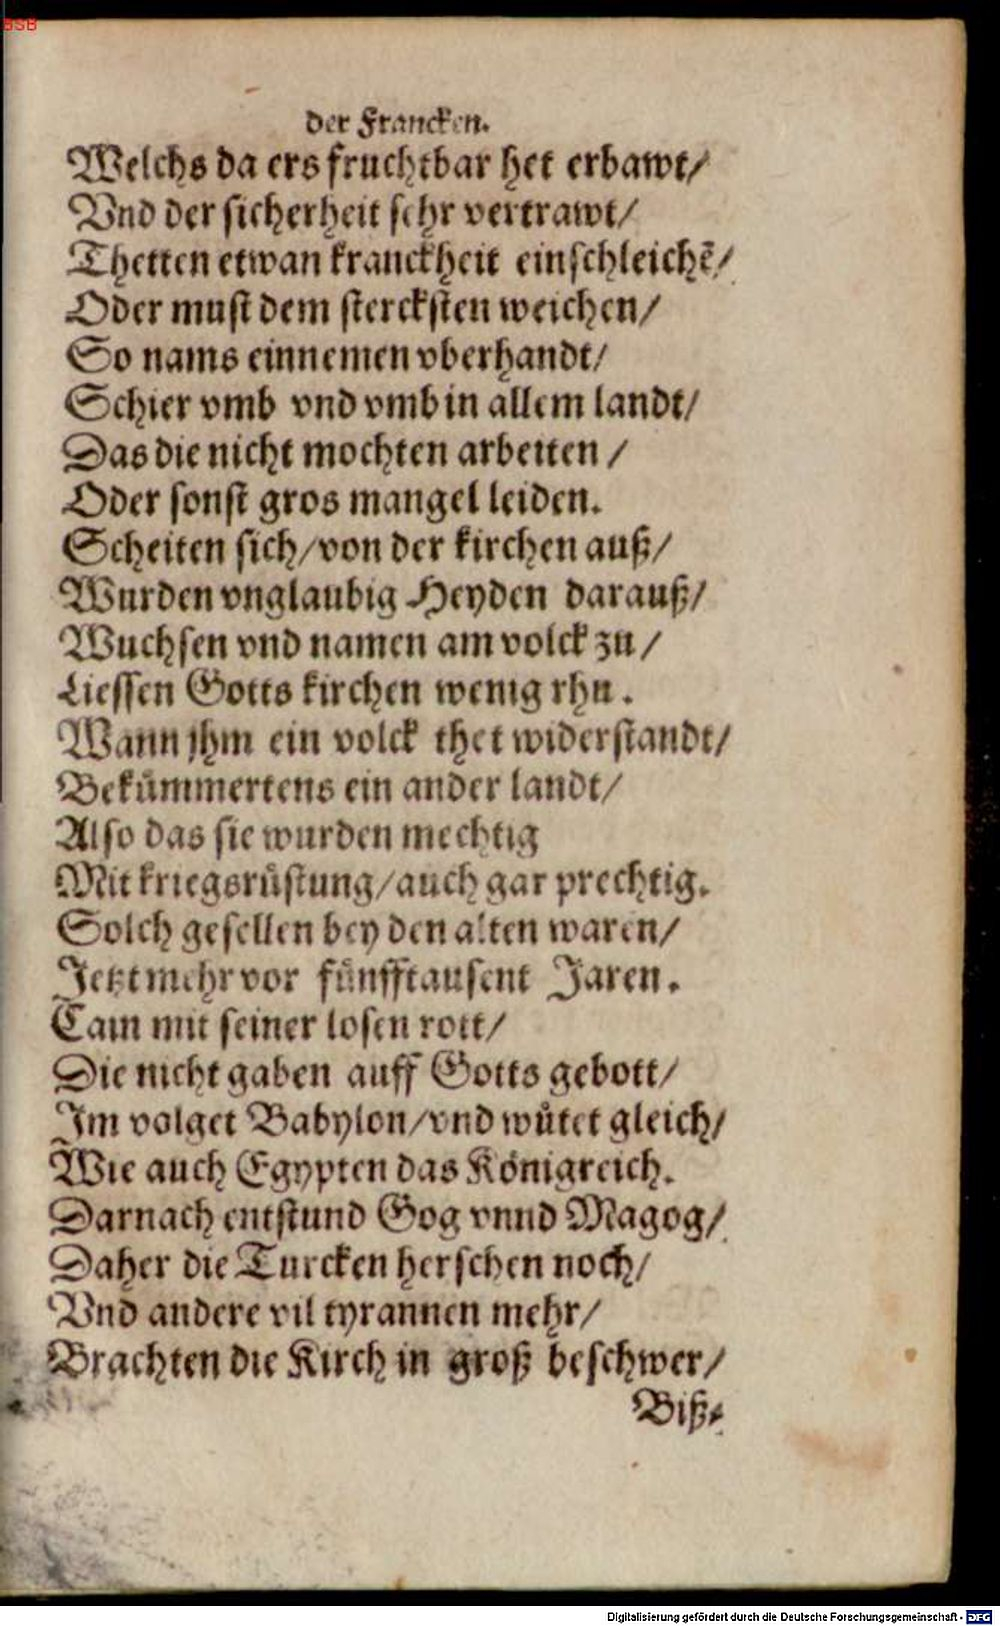 BSB
der Francken.
Welchs da ers fruchtbar het erbawt/
Vnd der sicherheit sehr vertrawt/
Thetten etwan kranckheit einschleichẽ/
Oder must dem stercksten weichen/
So nams einnemen vberhandt/
Schier vmb vnd vmb in allem landt/
Das die nicht mochten arbeiten /
Oder sonst gros mangel leiden.
Scheiten sich/von der kirchen auß/
Wurden vnglaubig Heyden darauß/
Wuchsen vnd namen am volck zu/
Liessen Gotts kirchen wenig rhu.
Wann jhm ein volck thet widerstandt/
Bekům̃ertens ein ander landt/
Also das sie wurden mechtig
Mit kriegsrůstung/auch gar prechtig.
Solch gesellen bey den alten waren/
Jetzt mehr vor fůnfftausent Jaren.
Cain mit seiner losen rott/
Die nicht gaben auff Gotts gebott/
Im volget Babylon/vnd wůtet gleich/
Wie auch Egypten das Königreich.
Darnach entstund Gog vnnd Magog/
Daher die Turcken herschen noch/
Vnd andere vil tyrannen mehr/
Brachten die Kirch in groß beschwer/
Biß/
Digitalisierung gefördert durch die Deutsche Forschungsgemeinschaft - DFG